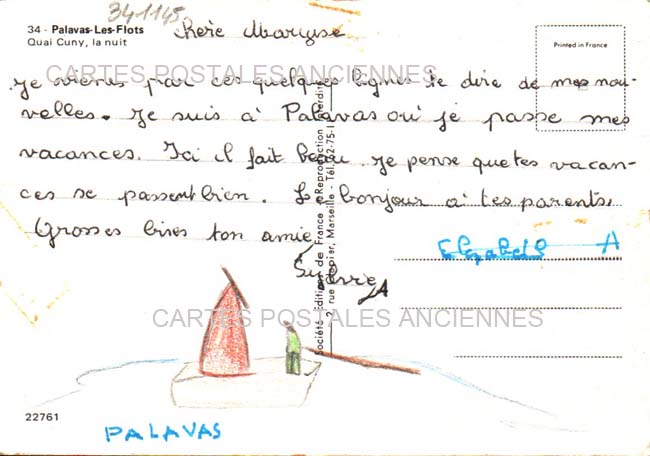 341145
34 - Palavas-Les-Flots
Quai Cuny, la nuit
Chere Maryse
Printed in France
CARTES POSTALES ANCIENNES
Je viens par ces quelques lignes te dire de mes nou-
velles. Je suis à Palavas où je passe mes
vacances. Ici il fait beau. Je pense que tes vacan-
ces se passent bien. Le bonjour à tes parents.
Grosses bises ton amie
A
A
CARTES POSTALES ANCIENNES
Société Éditions de France - Reproduction interdite
2, rue Marseille - Tél. 62-75-1
22761
PALAVAS